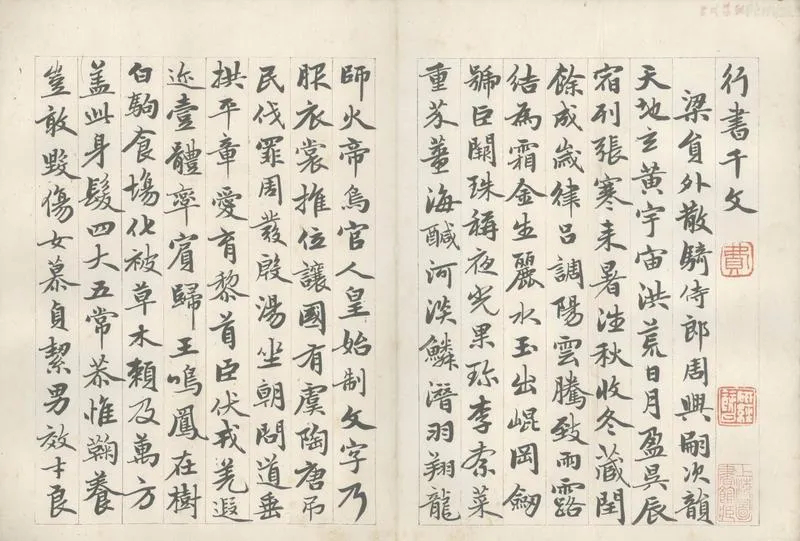 行書千文
梁員外散騎侍郎周興嗣次韻
天地玄黃宇宙洪荒日月盈昃辰
宿列張寒来暑往秋收冬藏閏
餘成歲律呂調陽雲騰致雨露
結為霜金生麗水玉出崐岡劒
號巨闕珠稱夜光果珍李柰菜
重芥薑海醎河淡鱗潛羽翔龍
師火帝鳥官人皇始制文字乃
服衣裳推位讓國有虞陶唐吊
民伐罪周發殷湯坐朝問道垂
拱平章愛育黎首臣伏戎羌遐
迩壹體率賓歸王鳴鳳在樹
白駒食場化被草木賴及萬方
盖此身髮四大五常恭惟鞠養
豈敢毀傷女慕貞絜男效才良